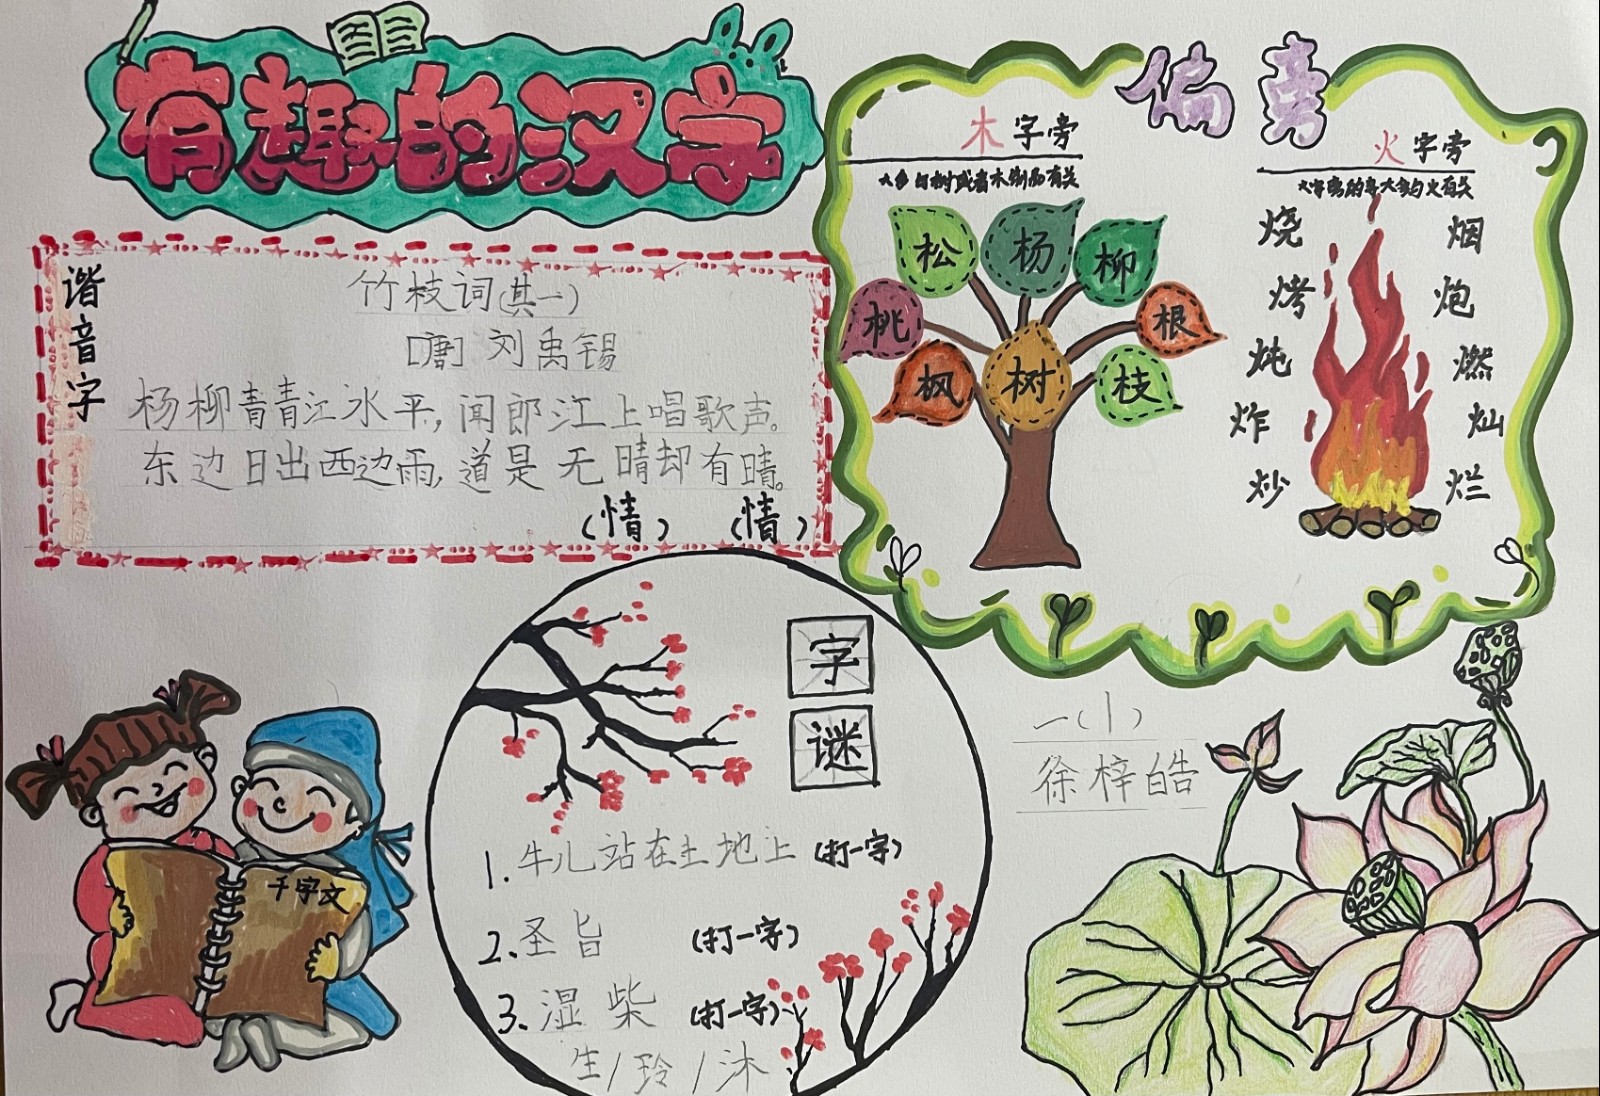 有趣的汉字
谐音字
竹枝词(其一)
[唐] 刘禹锡
杨柳青青江水平,闻郎江上唱歌声。
东边日出西边雨,道是无晴却有晴。
(情) (情)
偏旁
木字旁
大多与树或者木制品有关
松 杨 柳
桃 根
枫 树 枝
火字旁
火字旁的字大多与火有关
烧 烟
烤 炮
炖 燃
炸 灿
炒 烂
千字文
字谜
1.牛儿站在土地上 (打一字)
2.圣旨 (打一字)
3.湿柴 (打一字)
生/玲/沐
一(1)
徐梓皓